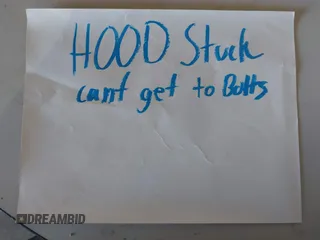 HOOD Stuck
cant get to Bolts
DREAMBID